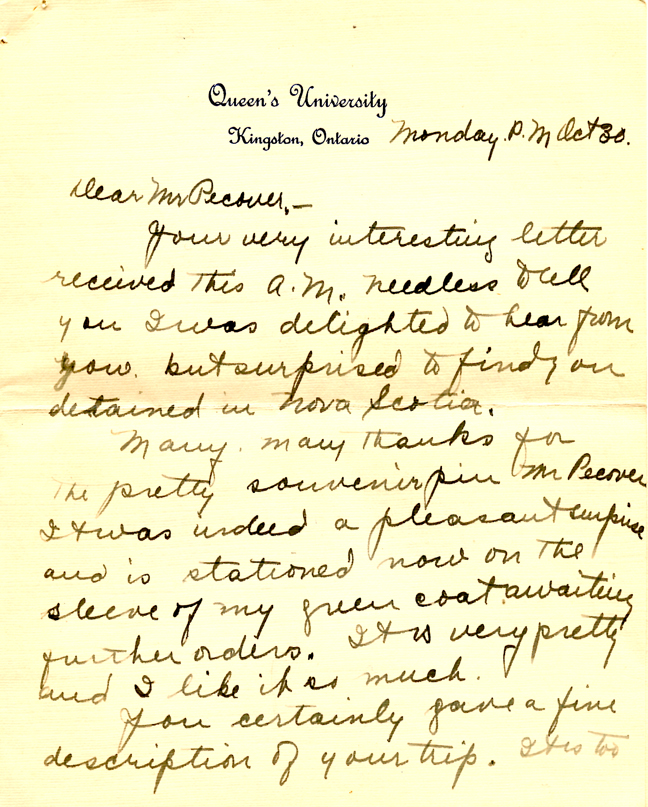 Queen's University
Kingston, Ontario Monday. P.M Oct 30.
Dear Mr Pecover,—
Your very interesting letter
received this A.M. needless to tell
you I was delighted to hear from
you. but surprised to find you
detained in Nova Scotia.
Many. many thanks for
the pretty souvenir pin Mr Pecover
It was indeed a pleasant surprise
and is stationed now on the
sleeve of my green coat. awaiting
further orders. It is very pretty
and I like it so much.
You certainly gave a fine
description of your trip. It is too